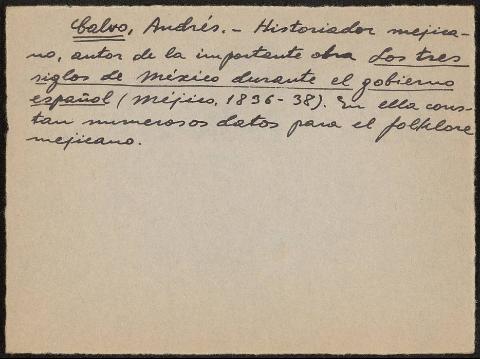 Calvo, Andrés. - Historiador mejica-
no, autor de la importante obra Los tres
siglos de México durante el gobierno
español (Méjico, 1836-38). En ella cons-
tan numerosos datos para el folklore
mejicano.